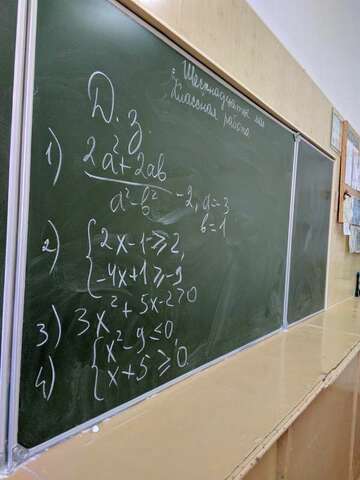 Шестнадцатое мая
Классная работа
Д.з.
1) (2a²+2ab)/(a²-b²) - 2, a=3
b=1
2) { 2x-1≥2,
-4x+1≥-9
3) 3x²+5x-2>0
4) { x²-9<0,
x+5≥0